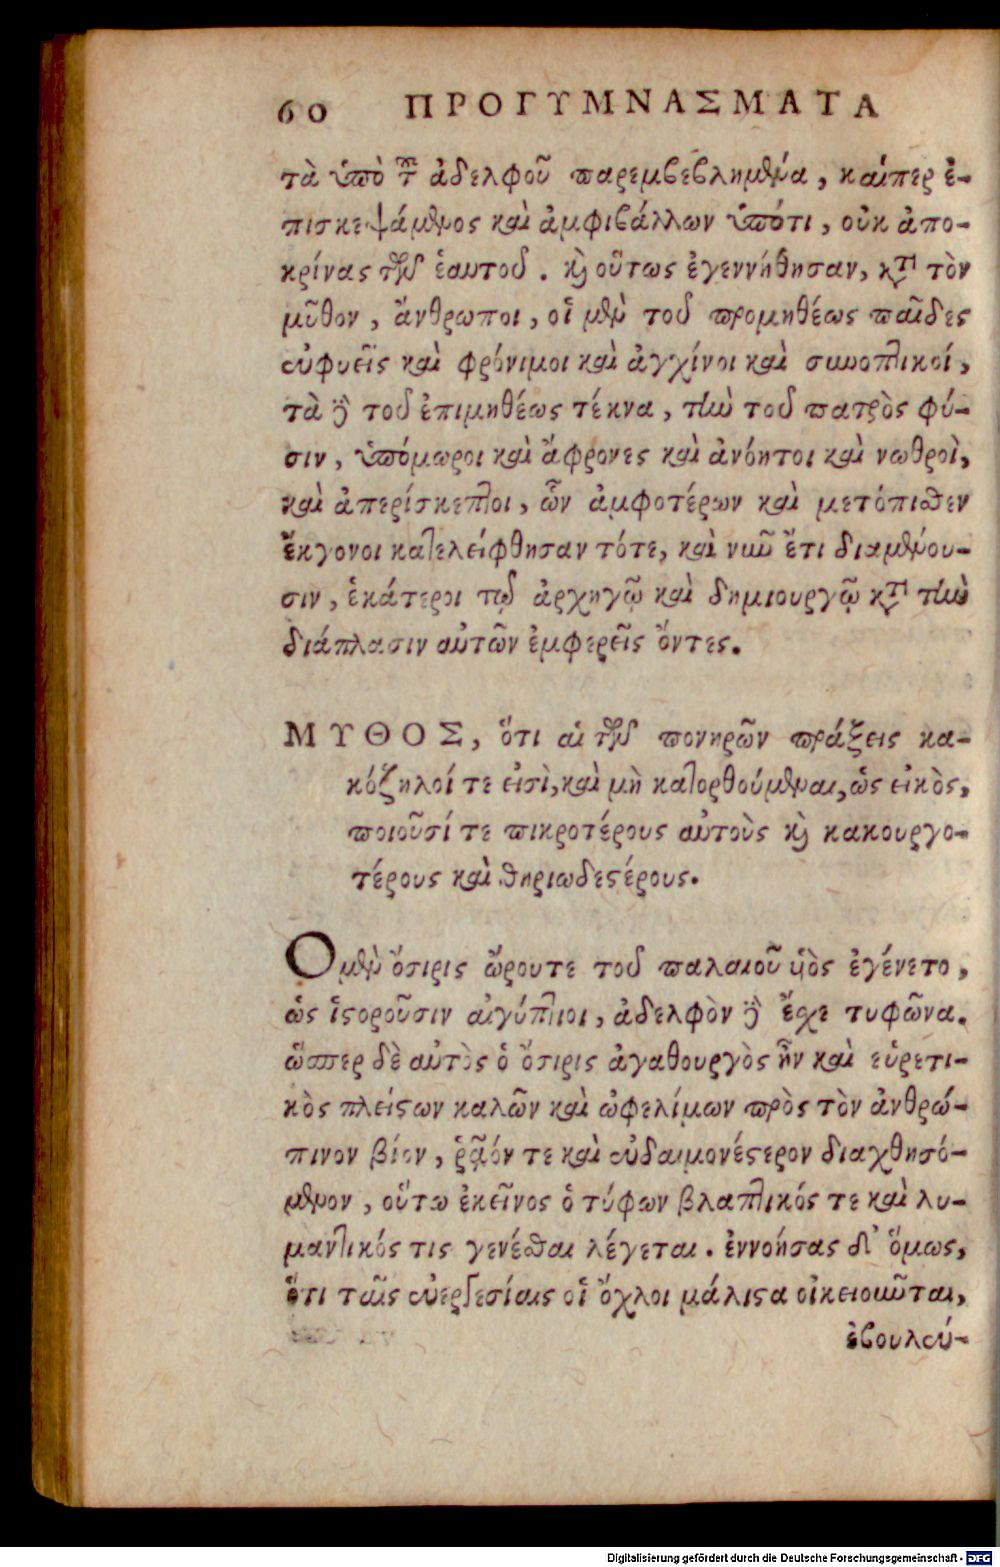 60 ΠΡΟΓΥΜΝΑΣΜΑΤΑ
τὰ ὑπὸ τοῦ ἀδελφοῦ παρεμβεβλημένα, καίπερ ἐ-
πισκεψάμενος καὶ ἀμφιβάλλων ὑπότι, οὐκ ἀπο-
κρίνας τῶν ἑαυτοῦ. καὶ οὕτως ἐγεννήθησαν, κατὰ τὸν
μῦθον, ἄνθρωποι, οἱ μὲν τοῦ προμηθέως παῖδες
εὐφυεῖς καὶ φρόνιμοι καὶ ἀγχίνοι καὶ συνοπτικοί,
τὰ δὲ τοῦ ἐπιμηθέως τέκνα, τὴν τοῦ πατρὸς φύ-
σιν, ὑπόμωροι καὶ ἄφρονες καὶ ἀνόητοι καὶ νωθροὶ,
καὶ ἀπερίσκεπτοι, ὧν ἀμφοτέρων καὶ μετόπισθεν
ἔκγονοι κατελείφθησαν τότε, καὶ νῦν ἔτι διαμένου-
σιν, ἑκάτεροι τῷ ἀρχηγῷ καὶ δημιουργῷ κατὰ τὴν
διάπλασιν αὐτῶν ἐμφερεῖς ὄντες.
ΜΥΘΟΣ, ὅτι αἱ τῶν πονηρῶν πράξεις κα-
κόζηλοί τε εἰσὶ, καὶ μὴ κατορθούμεναι, ὡς εἰκὸς,
ποιοῦσί τε πικροτέρους αὐτοὺς καὶ κακουργο-
τέρους καὶ θηριωδεστέρους.
Ο μὲν ὄσιρις ὥρουτε τοῦ παλαιοῦ υἱὸς ἐγένετο,
ὡς ἱστοροῦσιν αἰγύπτιοι, ἀδελφὸν δὲ ἔχε τυφῶνα.
ὥσπερ δὲ αὐτὸς ὁ ὄσιρις ἀγαθουργὸς ἦν καὶ εὑρετι-
κὸς πλείστων καλῶν καὶ ὠφελίμων πρὸς τὸν ἀνθρώ-
πινον βίον, ῥᾷόν τε καὶ εὐδαιμονέστερον διαχθησό-
μενον, οὕτω ἐκεῖνος ὁ τύφων βλαπτικός τε καὶ λυ-
μαντικός τις γενέσθαι λέγεται. ἐννοήσας δ' ὅμως,
ὅτι ταῖς εὐεργεσίαις οἱ ὄχλοι μάλιστα οἰκειοῦνται,
ἐβουλεύ-
Digitalisierung gefördert durch die Deutsche Forschungsgemeinschaft - DFG